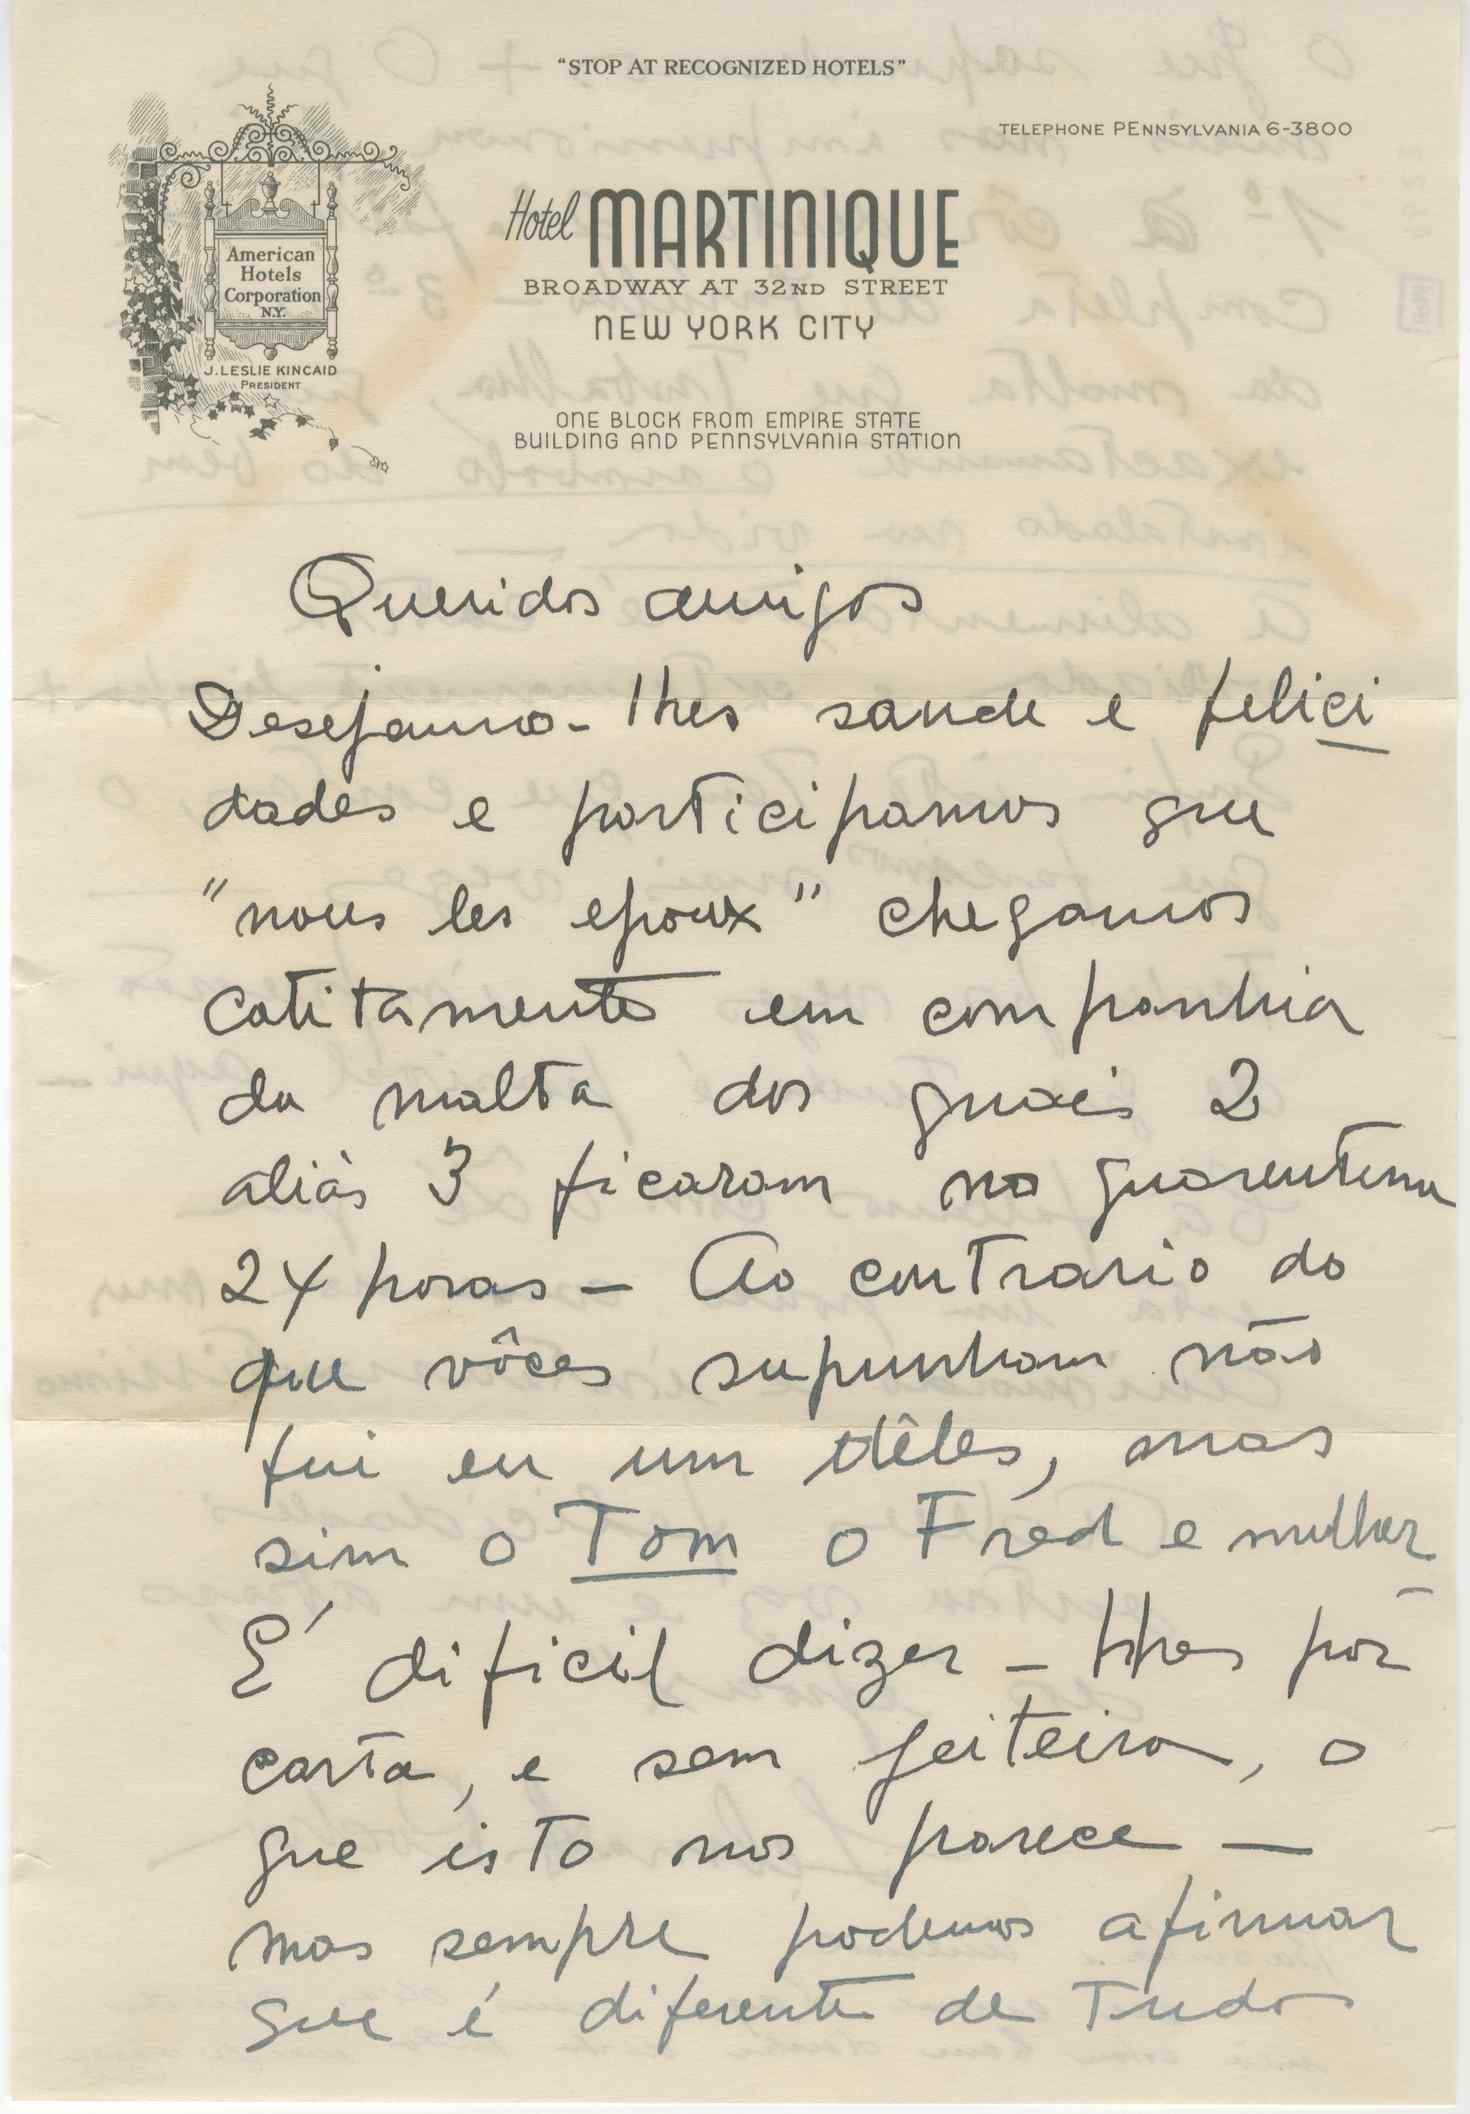 "STOP AT RECOGNIZED HOTELS"
TELEPHONE PENNSYLVANIA 6-3800
Hotel MARTINIQUE
BROADWAY AT 32ND STREET
NEW YORK CITY
ONE BLOCK FROM EMPIRE STATE
BUILDING AND PENNSYLVANIA STATION
American
Hotels
Corporation
N.Y.
J. LESLIE KINCAID
PRESIDENT
Queridos amigos
Desejamo-lhes saude e felici
dades e participamos que
"nous les epoux" chegamos
catitamente em companhia
da malta dos quais 2
aliàs 3 ficaram na quarentena
24 horas – Ao contrario do
que vôces supunham não
fui eu um dêles, mas
sim o Tom o Fred e mulher
É dificil dizer-lhes por
carta, e sem geiteira, o
que isto nos parece —
mas sempre podemos afirmar
que é diferente de tudo